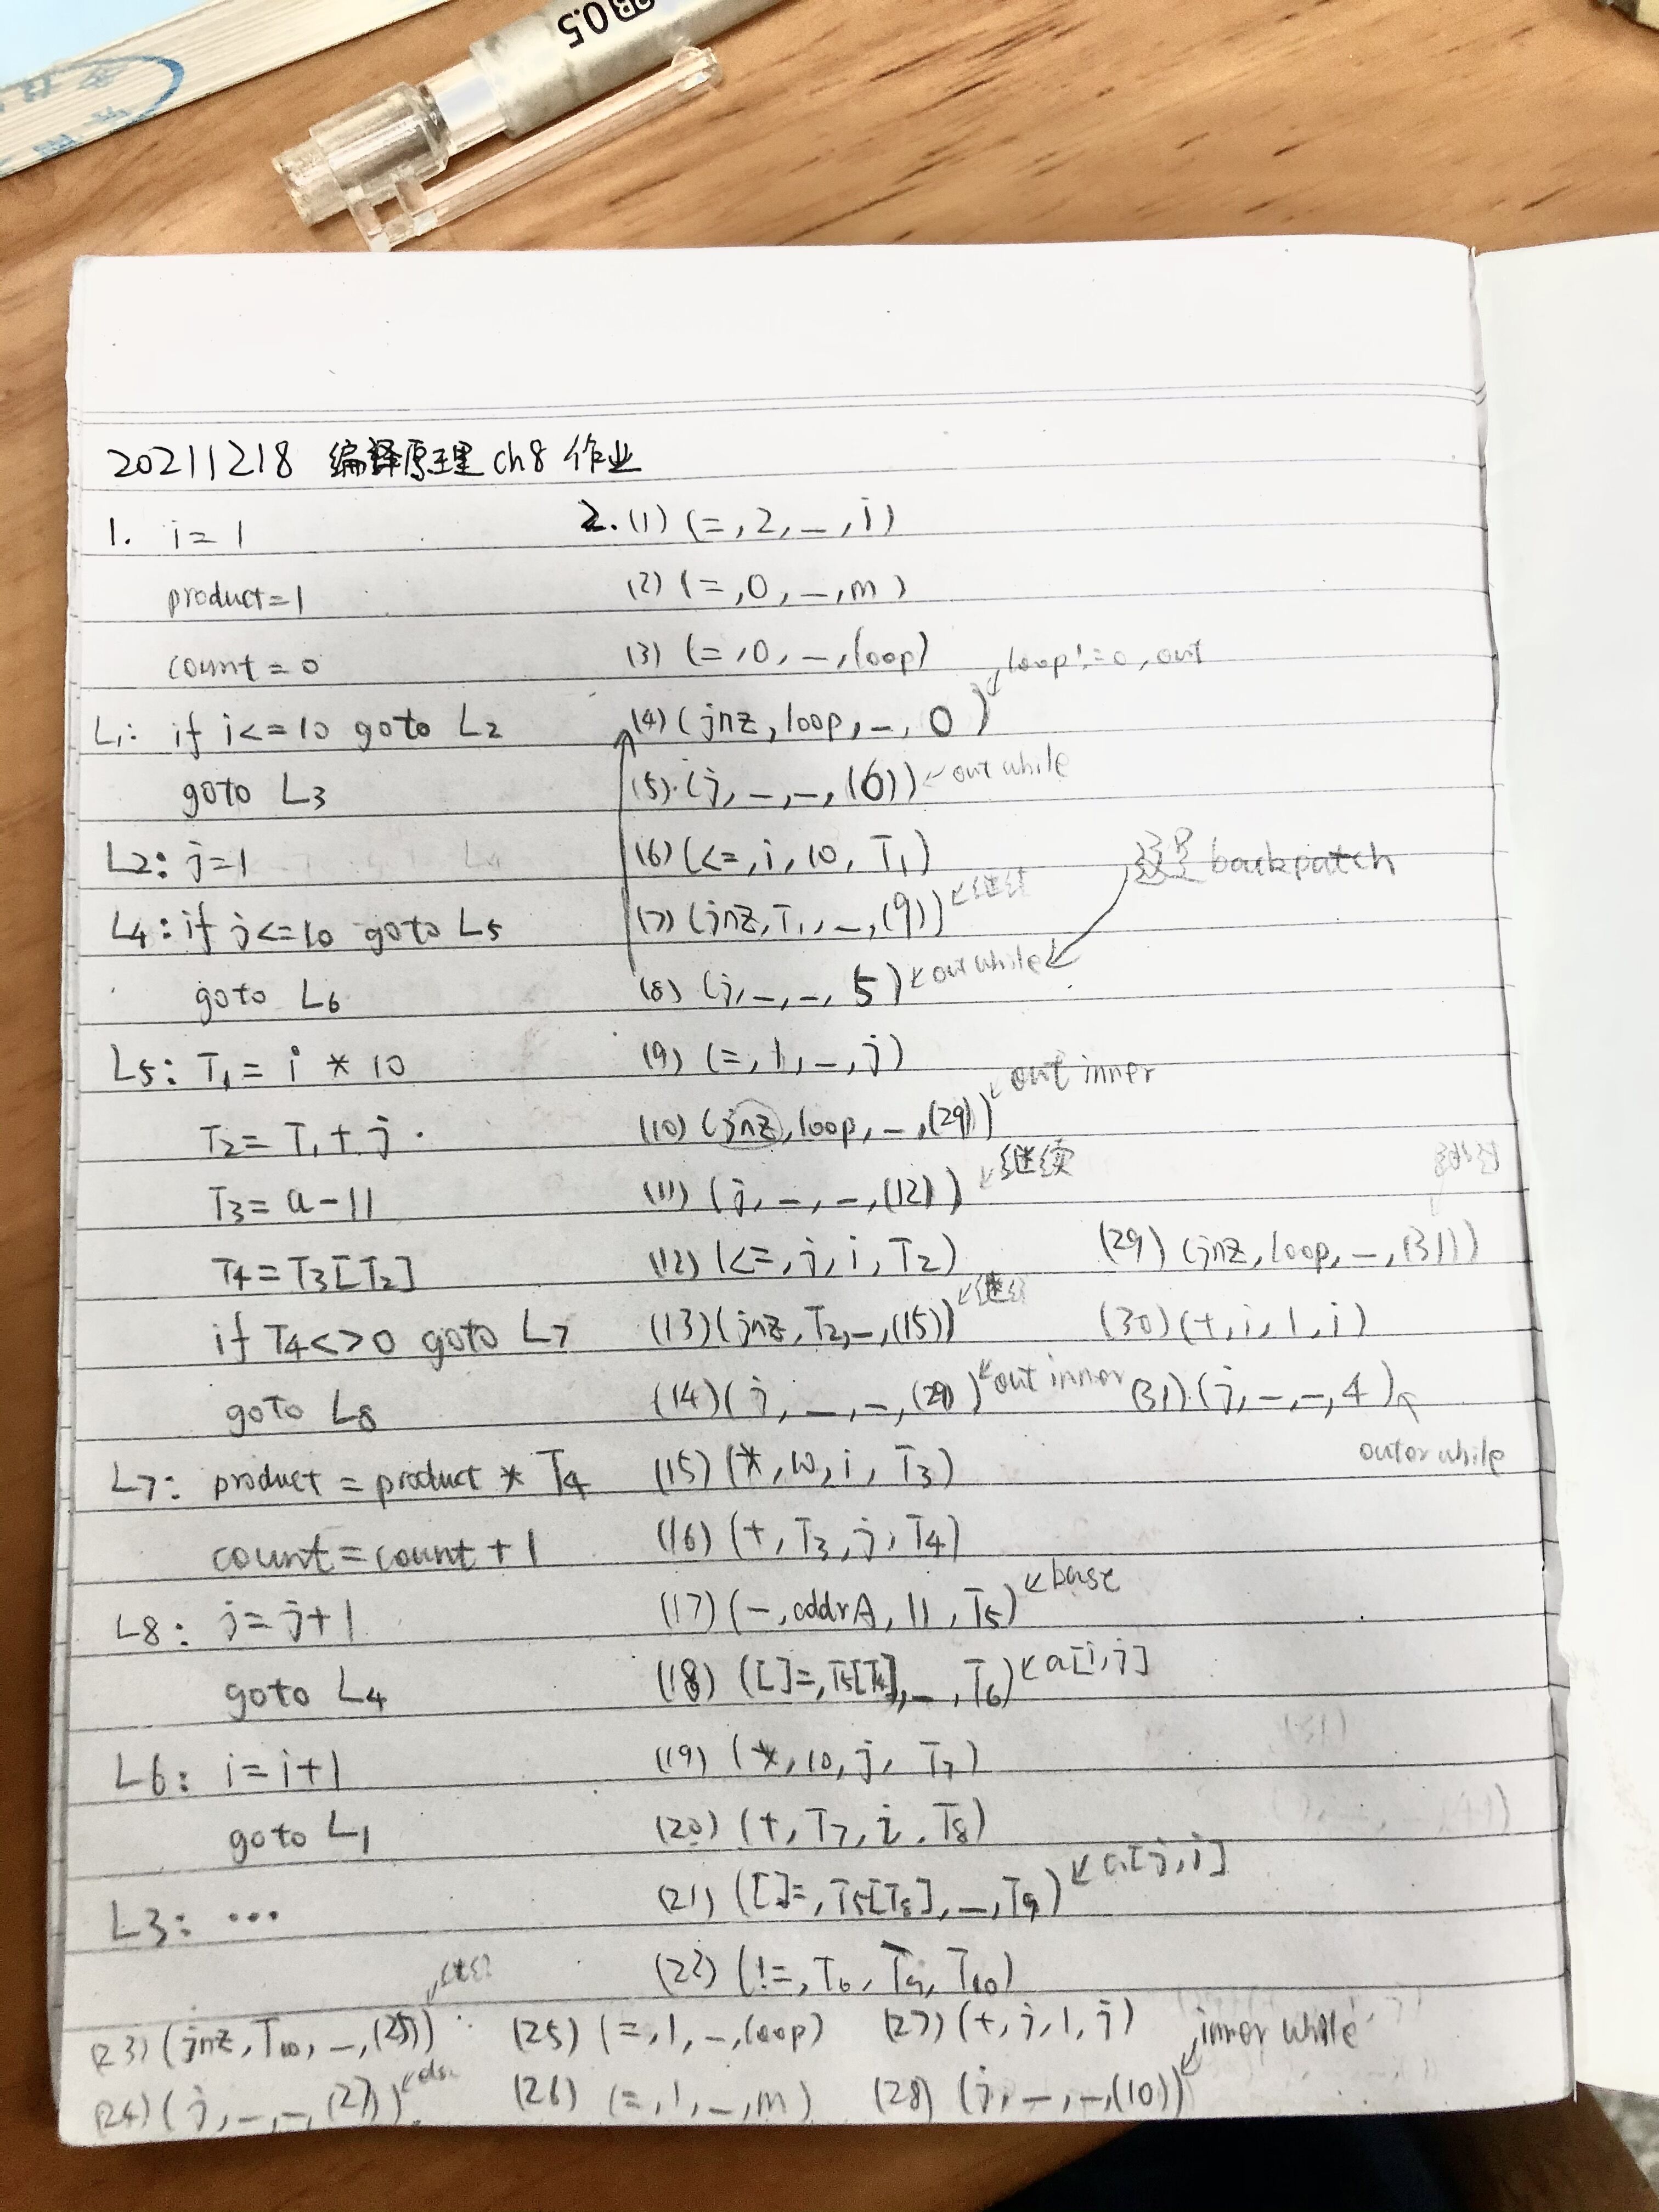 0.5
20211218 编译原理 ch8 作业
1. i=1
product=1
count=0
L1: if i<=10 goto L2
goto L3
L2: j=1
L4: if j<=10 goto L5
goto L6
L5: T1=i*10
T2=T1+j
T3=a-11
T4=T3[T2]
if T4<>0 goto L7
goto L8
L7: product=product*T4
count=count+1
L8: j=j+1
goto L4
L6: i=i+1
goto L1
L3: ...
2. (1) (=,2,_,i)
(2) (=,0,_,m)
(3) (=,0,_,loop)
(4) (jnz,loop,_,0) loop!=0,out
(5) (j,_,_,(6)) out while
(6) (<=,i,10,T1)
(7) (jnz,T1,_,(9)) 继续
这里 backpatch
(8) (j,_,_,5) out while
(9) (=,1,_,j)
(10) (jnz,loop,_,(29)) out inner
(11) (j,_,_,(12)) 继续
(12) (<=,j,i,T2)
(13) (jnz,T2,_,(15)) 继续
(14) (j,_,_,(29)) out inner
(15) (*,10,i,T3)
(16) (+,T3,j,T4)
(17) (-,addrA,11,T5) base
(18) ([]=,T5[T4],_,T6) a[i,j]
(19) (*,10,j,T7)
(20) (+,T7,i,T8)
(21) ([]=,T5[T8],_,T9) a[j,i]
(22) (!=,T6,T9,T10)
(23) (jnz,T10,_,(25))
(24) (j,_,_,(27))
(25) (=,1,_,loop)
(26) (=,1,_,m)
(27) (+,j,1,j)
(28) (j,_,_,(10)) inner while
(29) (jnz,loop,_,(31))
(30) (+,i,1,i)
(31) (j,_,_,4)
outer while